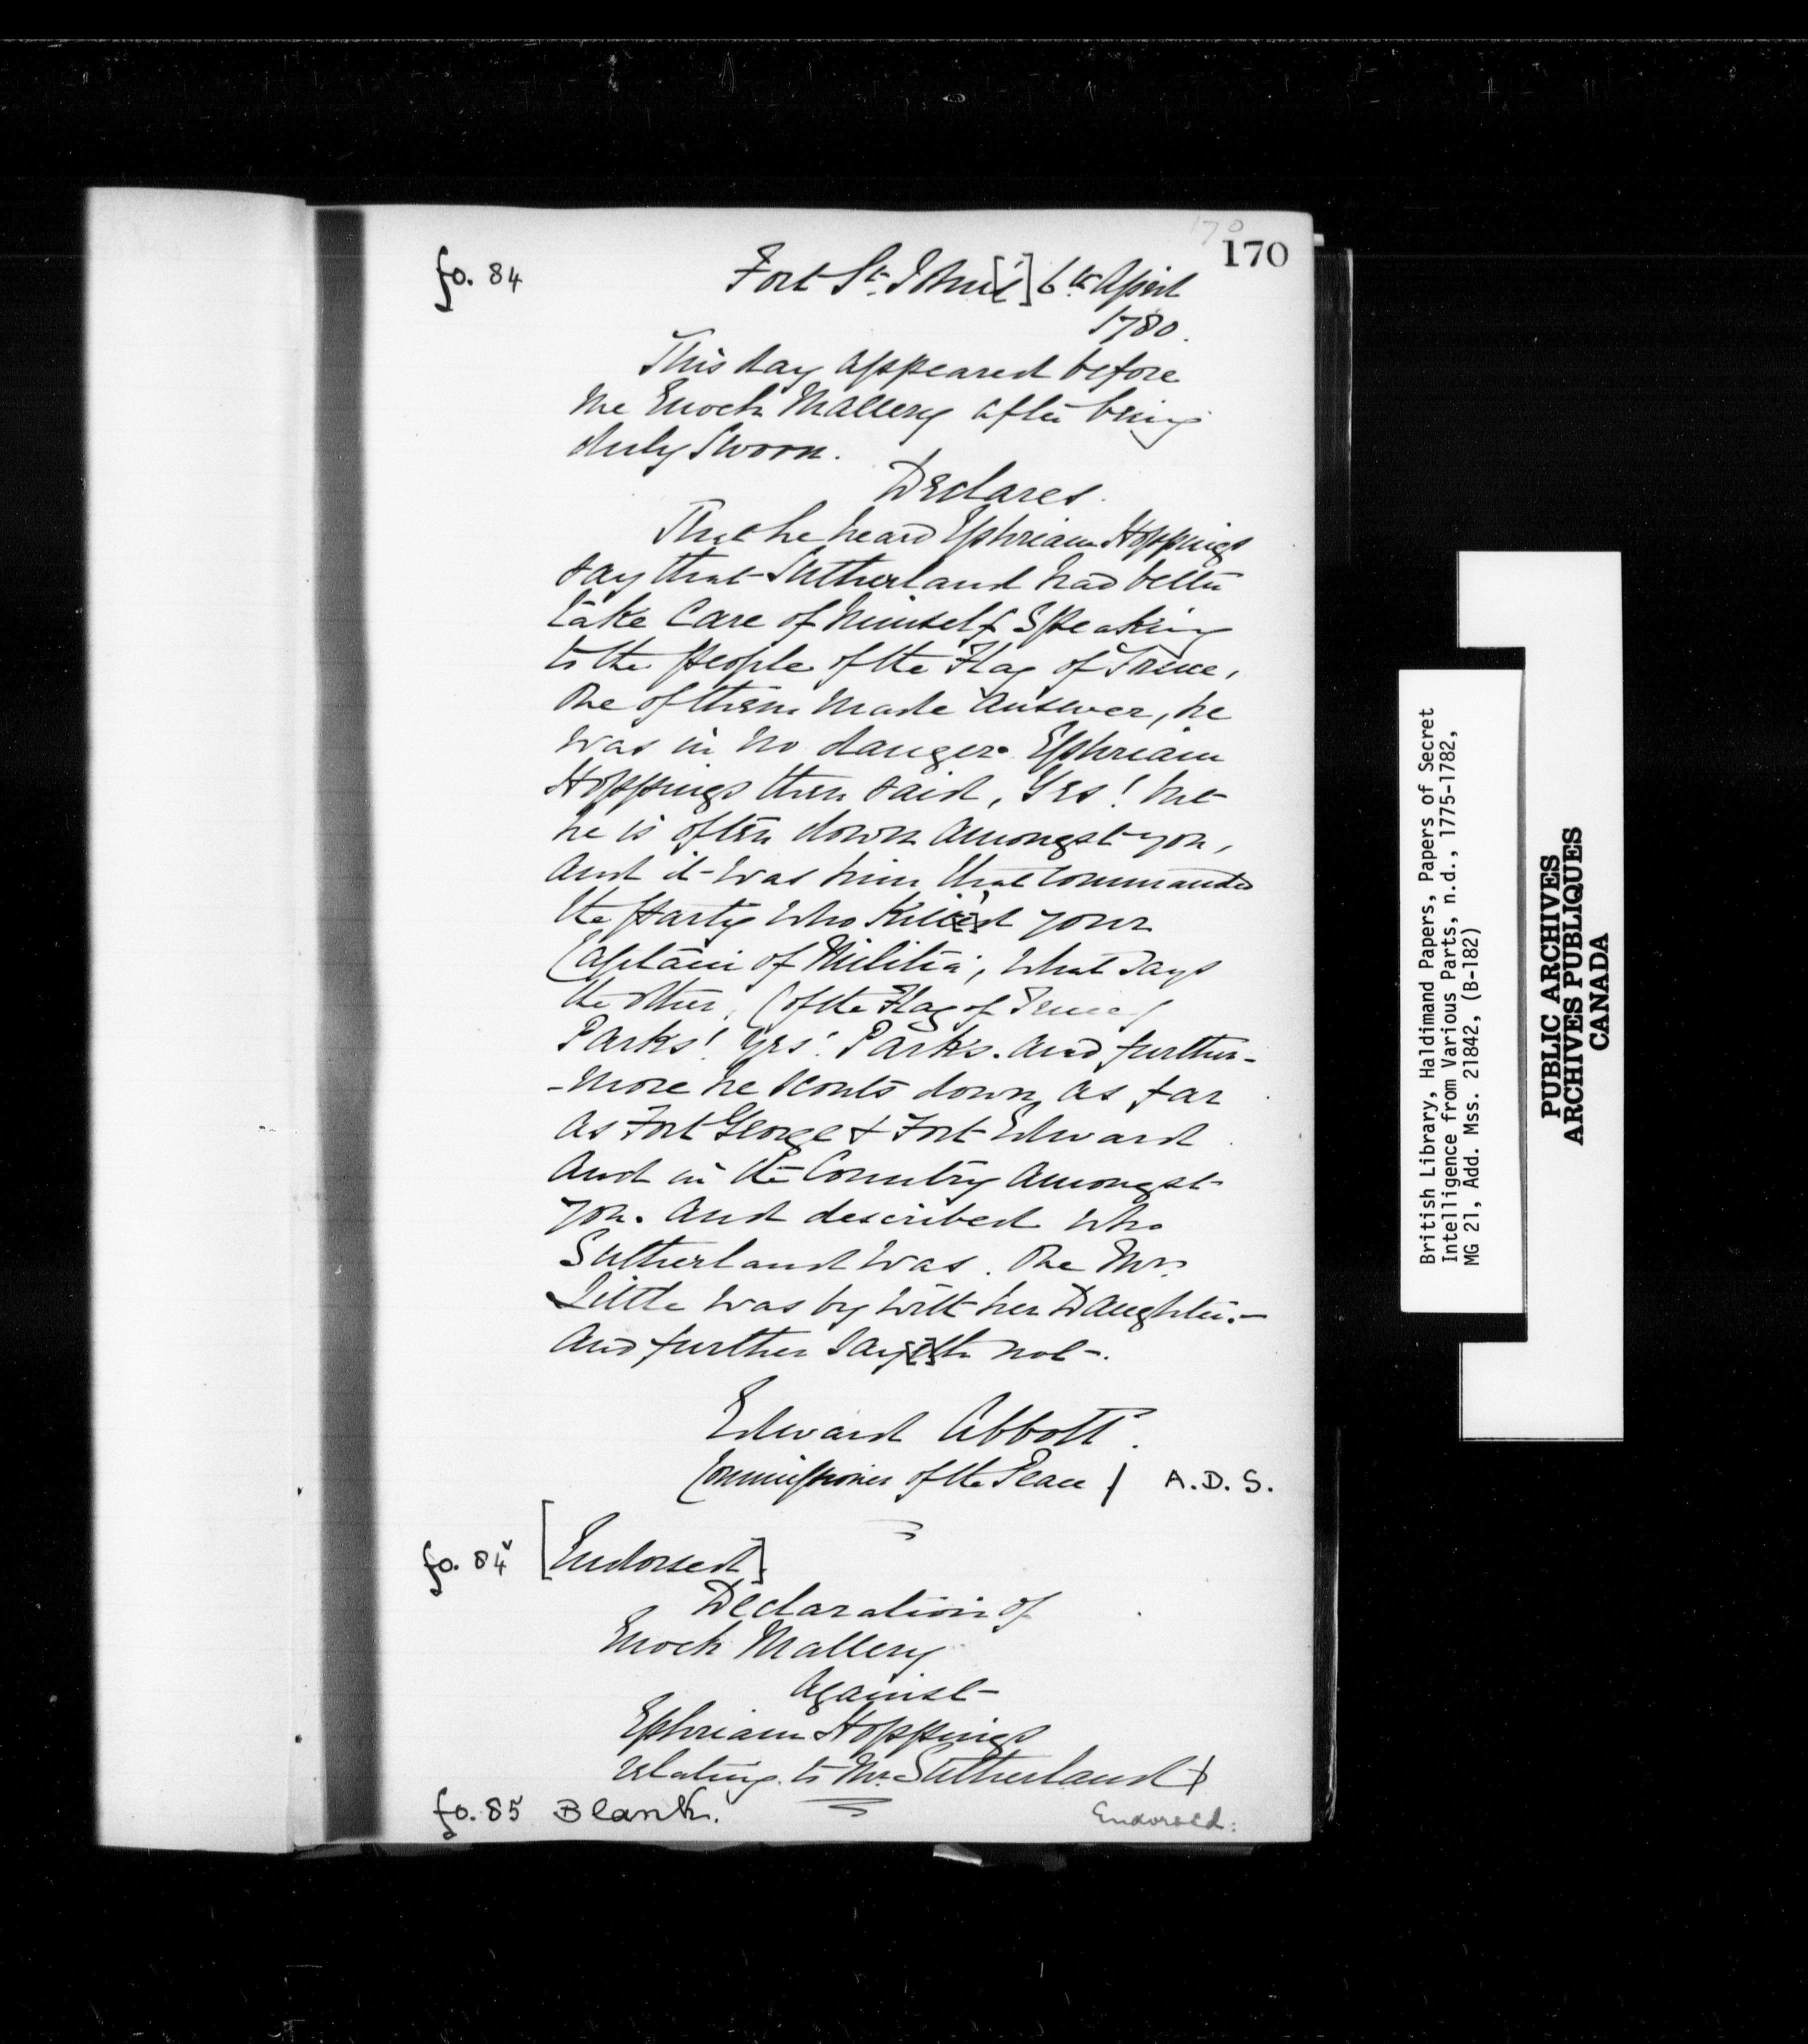 170
170
fo. 84
Fort St. John['s] 6th April
1780.
This day appeared before
me Enoch Mallery after being
duly Sworn.
Declares.
That he heard Ephriam Hoppings
say that Sutherland had better
take Care of himself Speaking
to the people of the Flag of Truce,
One of them made answer, he
was in no danger. Ephriam
Hoppings then said, Yes! but
he is often down amongst you,
and it was him that commanded
the party who Kill[e]d your
Captain of Militia, what says
the other, (of the Flag of Truce)
Parks! Yes! Parks. and further-
-more he scouts down as far
as Fort George & Fort Edward
and in the Country amongst
you. and described who
Sutherland was. One Mrs.
Little was by with her Daughter.—
and further say[e]th not-.
Edward Abbott.
Commissioner of the Peace / A.D.S.
fo. 84v [Endorsed]
Declaration of
Enoch Mallery
against
Ephriam Hoppings
relating to Mr. Sutherland
fo. 85 Blank.
Endorsed.
British Library, Haldimand Papers, Papers of Secret
Intelligence from Various Parts, n.d., 1775-1782,
MG 21, Add. Mss. 21842, (B-182)
PUBLIC ARCHIVES
ARCHIVES PUBLIQUES
CANADA